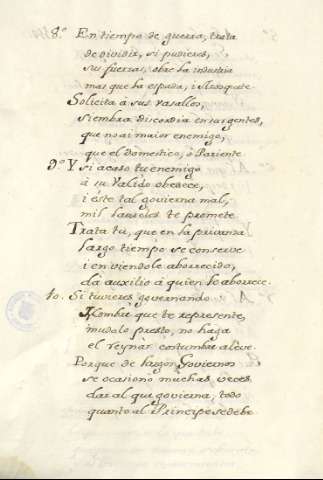 8.º En tiempo de guerra, trata
de dividir, si pudieres,
sus fuerzas, obre la industria
mas que la espada, i
Solicita a sus vasallos,
siembra discordia en sus gentes,
que no ai maior enemigo,
que el domestico, ò Pariente
9.º Y si acaso tu enemigo
à su Valido obedece,
i èste tal govierna mal,
mil laureles te promete
Trata tu, que en la privanza
largo tiempo se conserve
i en viendole aborrecido,
dà auxilio à quien lo aborrece.
10. Si tuvieres governando
Hombre que te represente,
mudalo presto, no haga
el reynar costumbre aleve.
Porque de largos Goviernos
se ocasionò muchas veces
dar al que govierna, todo
quanto al Principe se debe